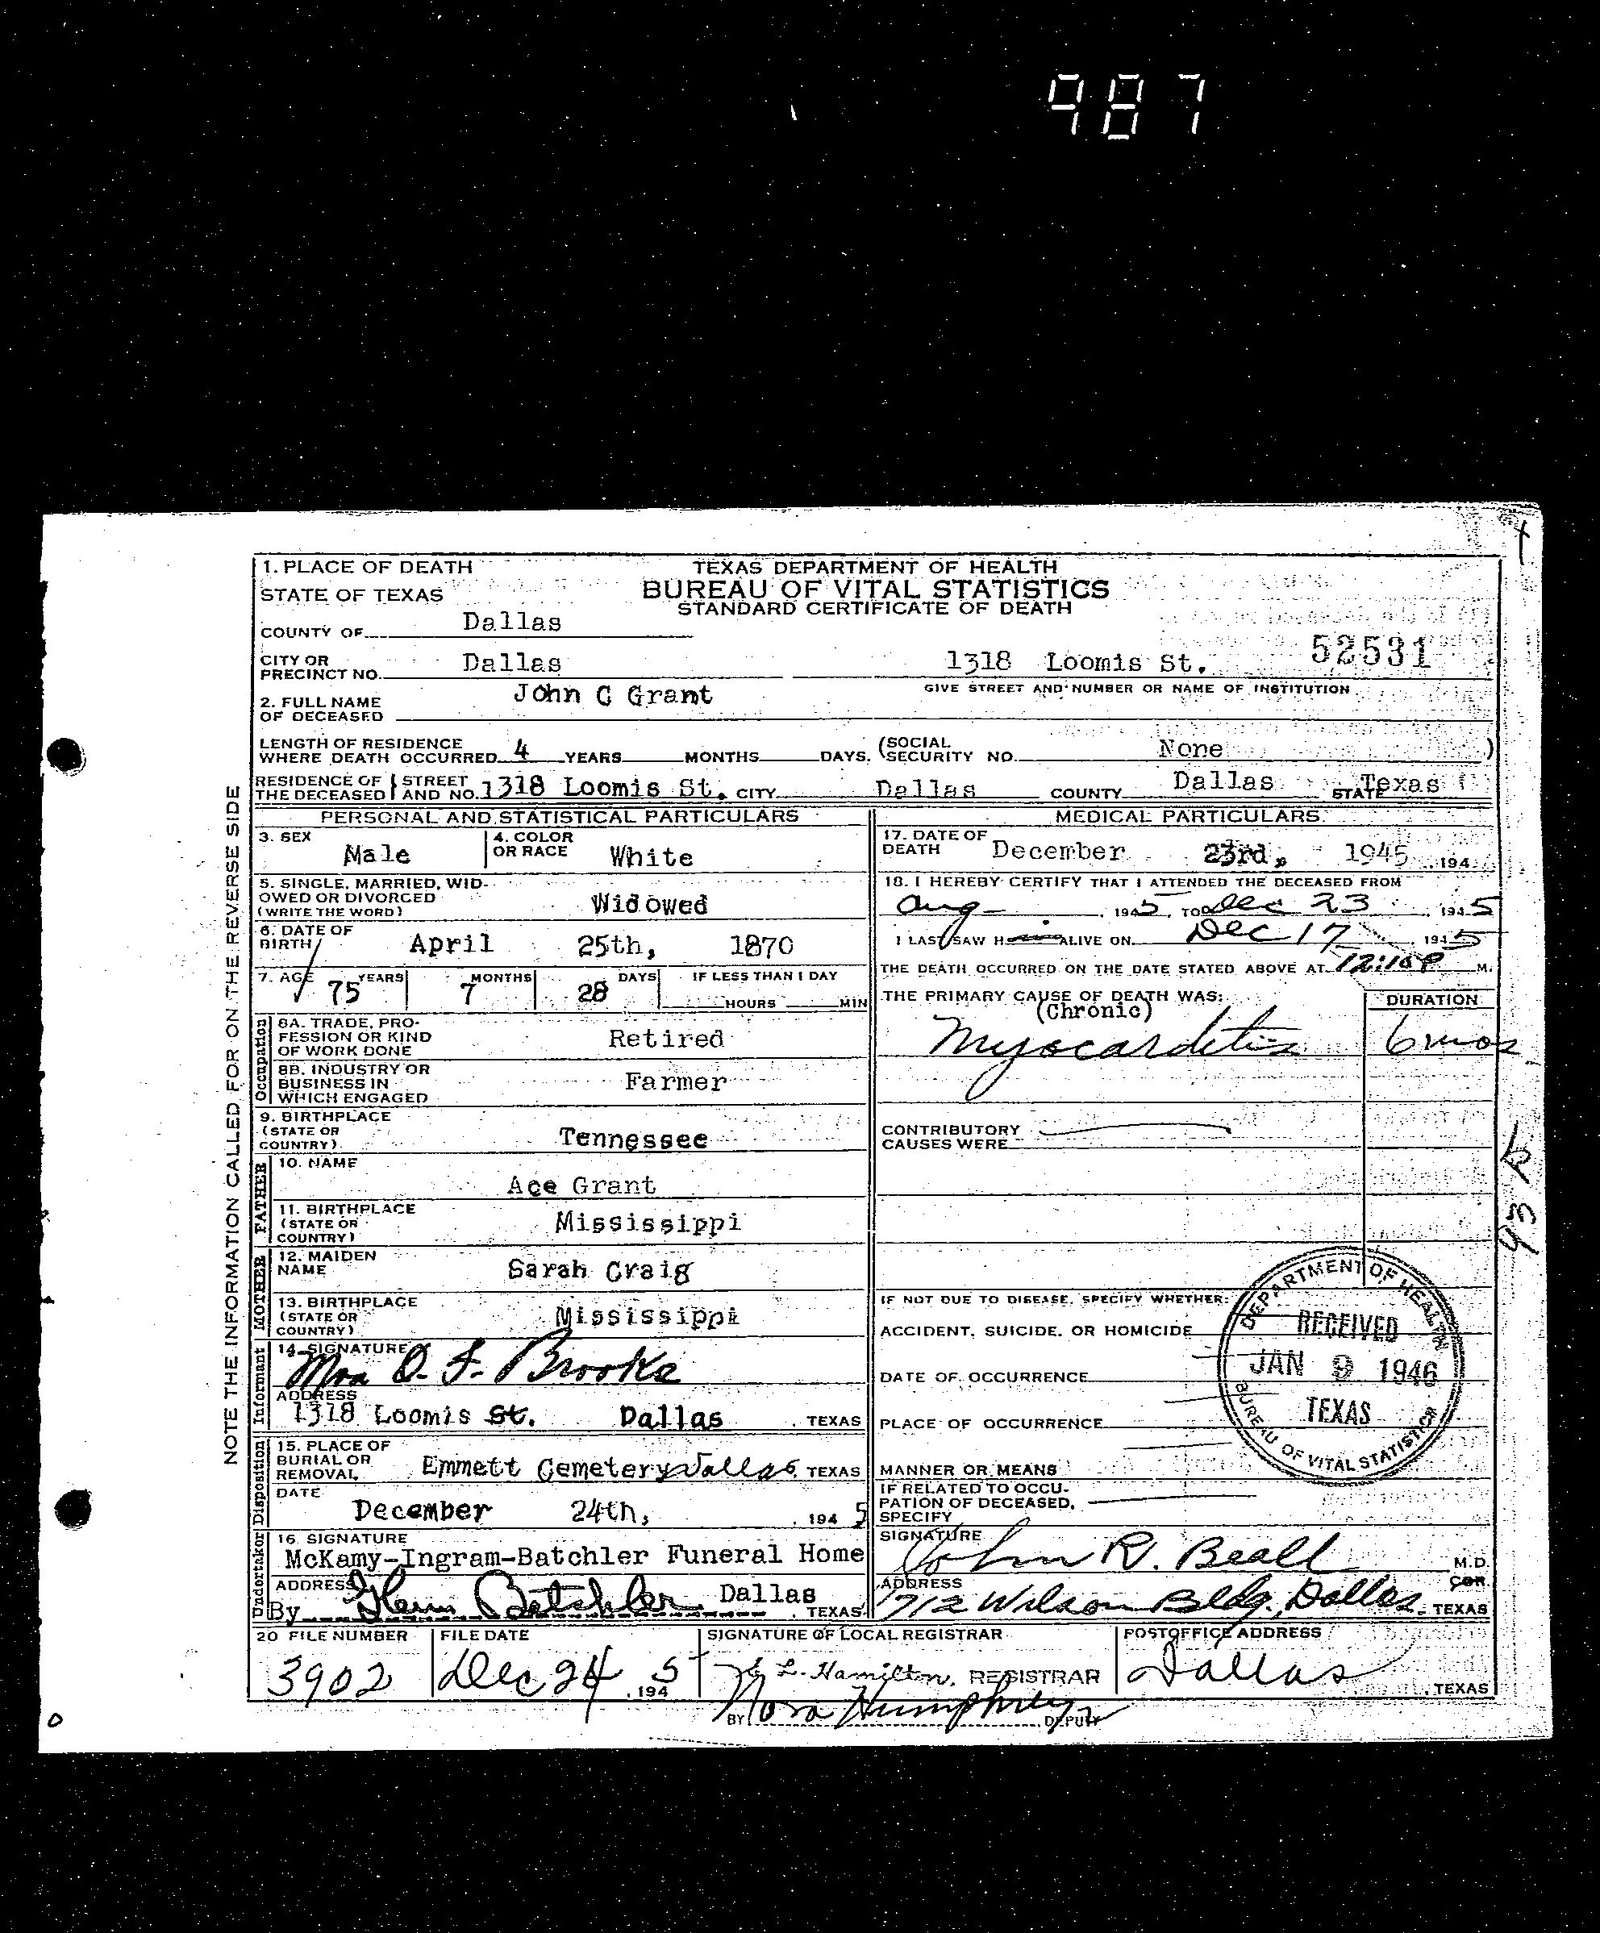 987
1. PLACE OF DEATH
STATE OF TEXAS
TEXAS DEPARTMENT OF HEALTH
BUREAU OF VITAL STATISTICS
STANDARD CERTIFICATE OF DEATH
COUNTY OF Dallas
CITY OR
PRECINCT NO. Dallas 1318 Loomis St. 52531
GIVE STREET AND NUMBER OR NAME OF INSTITUTION
2. FULL NAME
OF DECEASED John C Grant
LENGTH OF RESIDENCE
WHERE DEATH OCCURRED 4 YEARS MONTHS DAYS. (SOCIAL
SECURITY NO. None )
RESIDENCE OF
THE DECEASED STREET
AND NO. 1318 Loomis St. CITY Dallas COUNTY Dallas STATE Texas
NOTE THE INFORMATION CALLED FOR ON THE REVERSE SIDE
PERSONAL AND STATISTICAL PARTICULARS
3. SEX Male
4. COLOR
OR RACE White
5. SINGLE, MARRIED, WID-
OWED OR DIVORCED
(WRITE THE WORD) Widowed
6. DATE OF
BIRTH April 25th, 1870
7. AGE 75 YEARS 7 MONTHS 28 DAYS IF LESS THAN 1 DAY
HOURS MIN
Occupation
8A. TRADE, PRO-
FESSION OR KIND
OF WORK DONE Retired
8B. INDUSTRY OR
BUSINESS IN
WHICH ENGAGED Farmer
9. BIRTHPLACE
(STATE OR
COUNTRY) Tennessee
FATHER
10. NAME
Ace Grant
11. BIRTHPLACE
(STATE OR
COUNTRY) Mississippi
MOTHER
12. MAIDEN
NAME Sarah Craig
13. BIRTHPLACE
(STATE OR
COUNTRY) Mississippi
Informant
14. SIGNATURE
Mrs O. F. Brooks
ADDRESS
1318 Loomis St. Dallas, TEXAS
Disposition
15. PLACE OF
BURIAL OR
REMOVAL Emmett Cemetery Dallas, TEXAS
DATE
December 24th, 1945
Undertaker
16. SIGNATURE
McKamy-Ingram-Batchler Funeral Home
ADDRESS Dallas
By Glenn Batchler, TEXAS
MEDICAL PARTICULARS
17. DATE OF
DEATH December 23rd, 1945 194
18. I HEREBY CERTIFY THAT I ATTENDED THE DECEASED FROM
Aug 1945, TO Dec 23, 1945
I LAST SAW H im ALIVE ON Dec 17 1945
THE DEATH OCCURRED ON THE DATE STATED ABOVE AT 12:10P M.
THE PRIMARY CAUSE OF DEATH WAS: DURATION
(Chronic)
Myocarditis 6 mos
CONTRIBUTORY
CAUSES WERE
93
IF NOT DUE TO DISEASE, SPECIFY WHETHER:
ACCIDENT, SUICIDE, OR HOMICIDE
DATE OF OCCURRENCE
PLACE OF OCCURRENCE
MANNER OR MEANS
IF RELATED TO OCCU-
PATION OF DECEASED,
SPECIFY
DEPARTMENT OF HEALTH
RECEIVED
JAN 9 1946
TEXAS
BUREAU OF VITAL STATISTICS
SIGNATURE
John R. Beall M.D.
COR.
ADDRESS
712 Wilson Bldg., Dallas, TEXAS
20 FILE NUMBER
3902
FILE DATE
Dec 24, 1945
SIGNATURE OF LOCAL REGISTRAR
L. Hamilton, REGISTRAR
BY Nora Humphrey DEPUTY
POSTOFFICE ADDRESS
Dallas
TEXAS